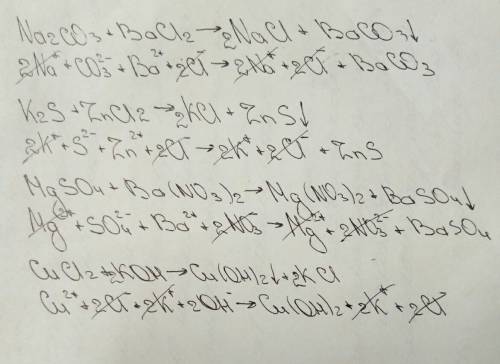 Na2CO3 + BaCl2 → 2NaCl + BaCO3↓
2Na⁺ + CO3²⁻ + Ba²⁺ + 2Cl⁻ → 2Na⁺ + 2Cl⁻ + BaCO3
K2S + ZnCl2 → 2KCl + ZnS↓
2K⁺ + S²⁻ + Zn²⁺ + 2Cl⁻ → 2K⁺ + 2Cl⁻ + ZnS
MgSO4 + Ba(NO3)2 → Mg(NO3)2 + BaSO4↓
Mg²⁺ + SO4²⁻ + Ba²⁺ + 2NO3⁻ → Mg²⁺ + 2NO3²⁻ + BaSO4
CuCl2 + 2KOH → Cu(OH)2↓ + 2KCl
Cu²⁺ + 2Cl⁻ + 2K⁺ + 2OH⁻ → Cu(OH)2 + 2K⁺ + 2Cl⁻